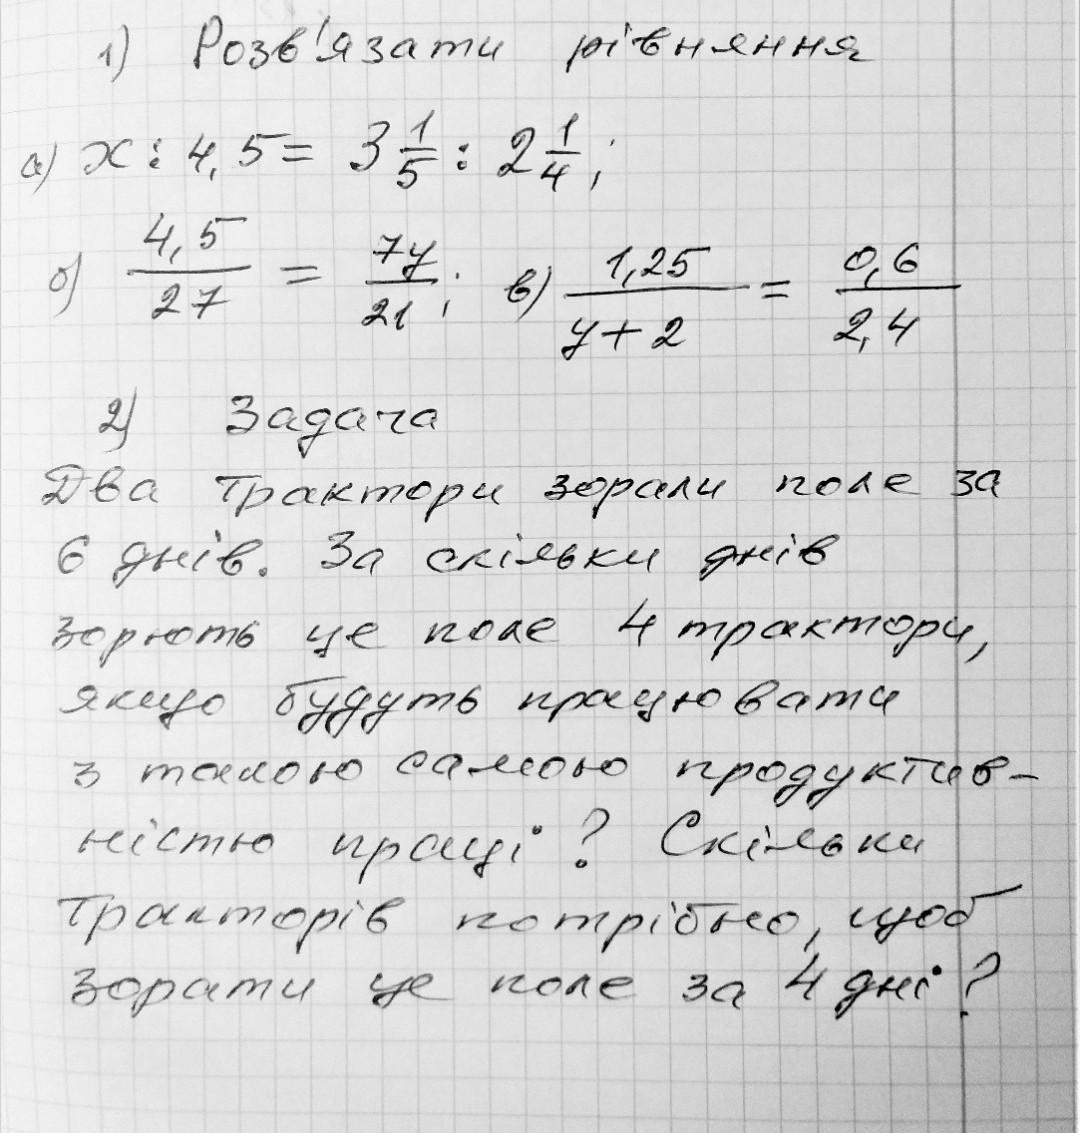 1) Розв'язати рівняння
а) x : 4,5 = 3 1/5 : 2 1/4 ;
б) 4,5/27 = 7y/21 ; в) 1,25/(y+2) = 0,6/2,4
2) Задача
Два трактори зорали поле за
6 днів. За скільки днів
зорють це поле 4 трактори,
якщо будуть працювати
з такою самою продуктив-
ністю праці? Скільки
тракторів потрібно, щоб
зорати це поле за 4 дні?